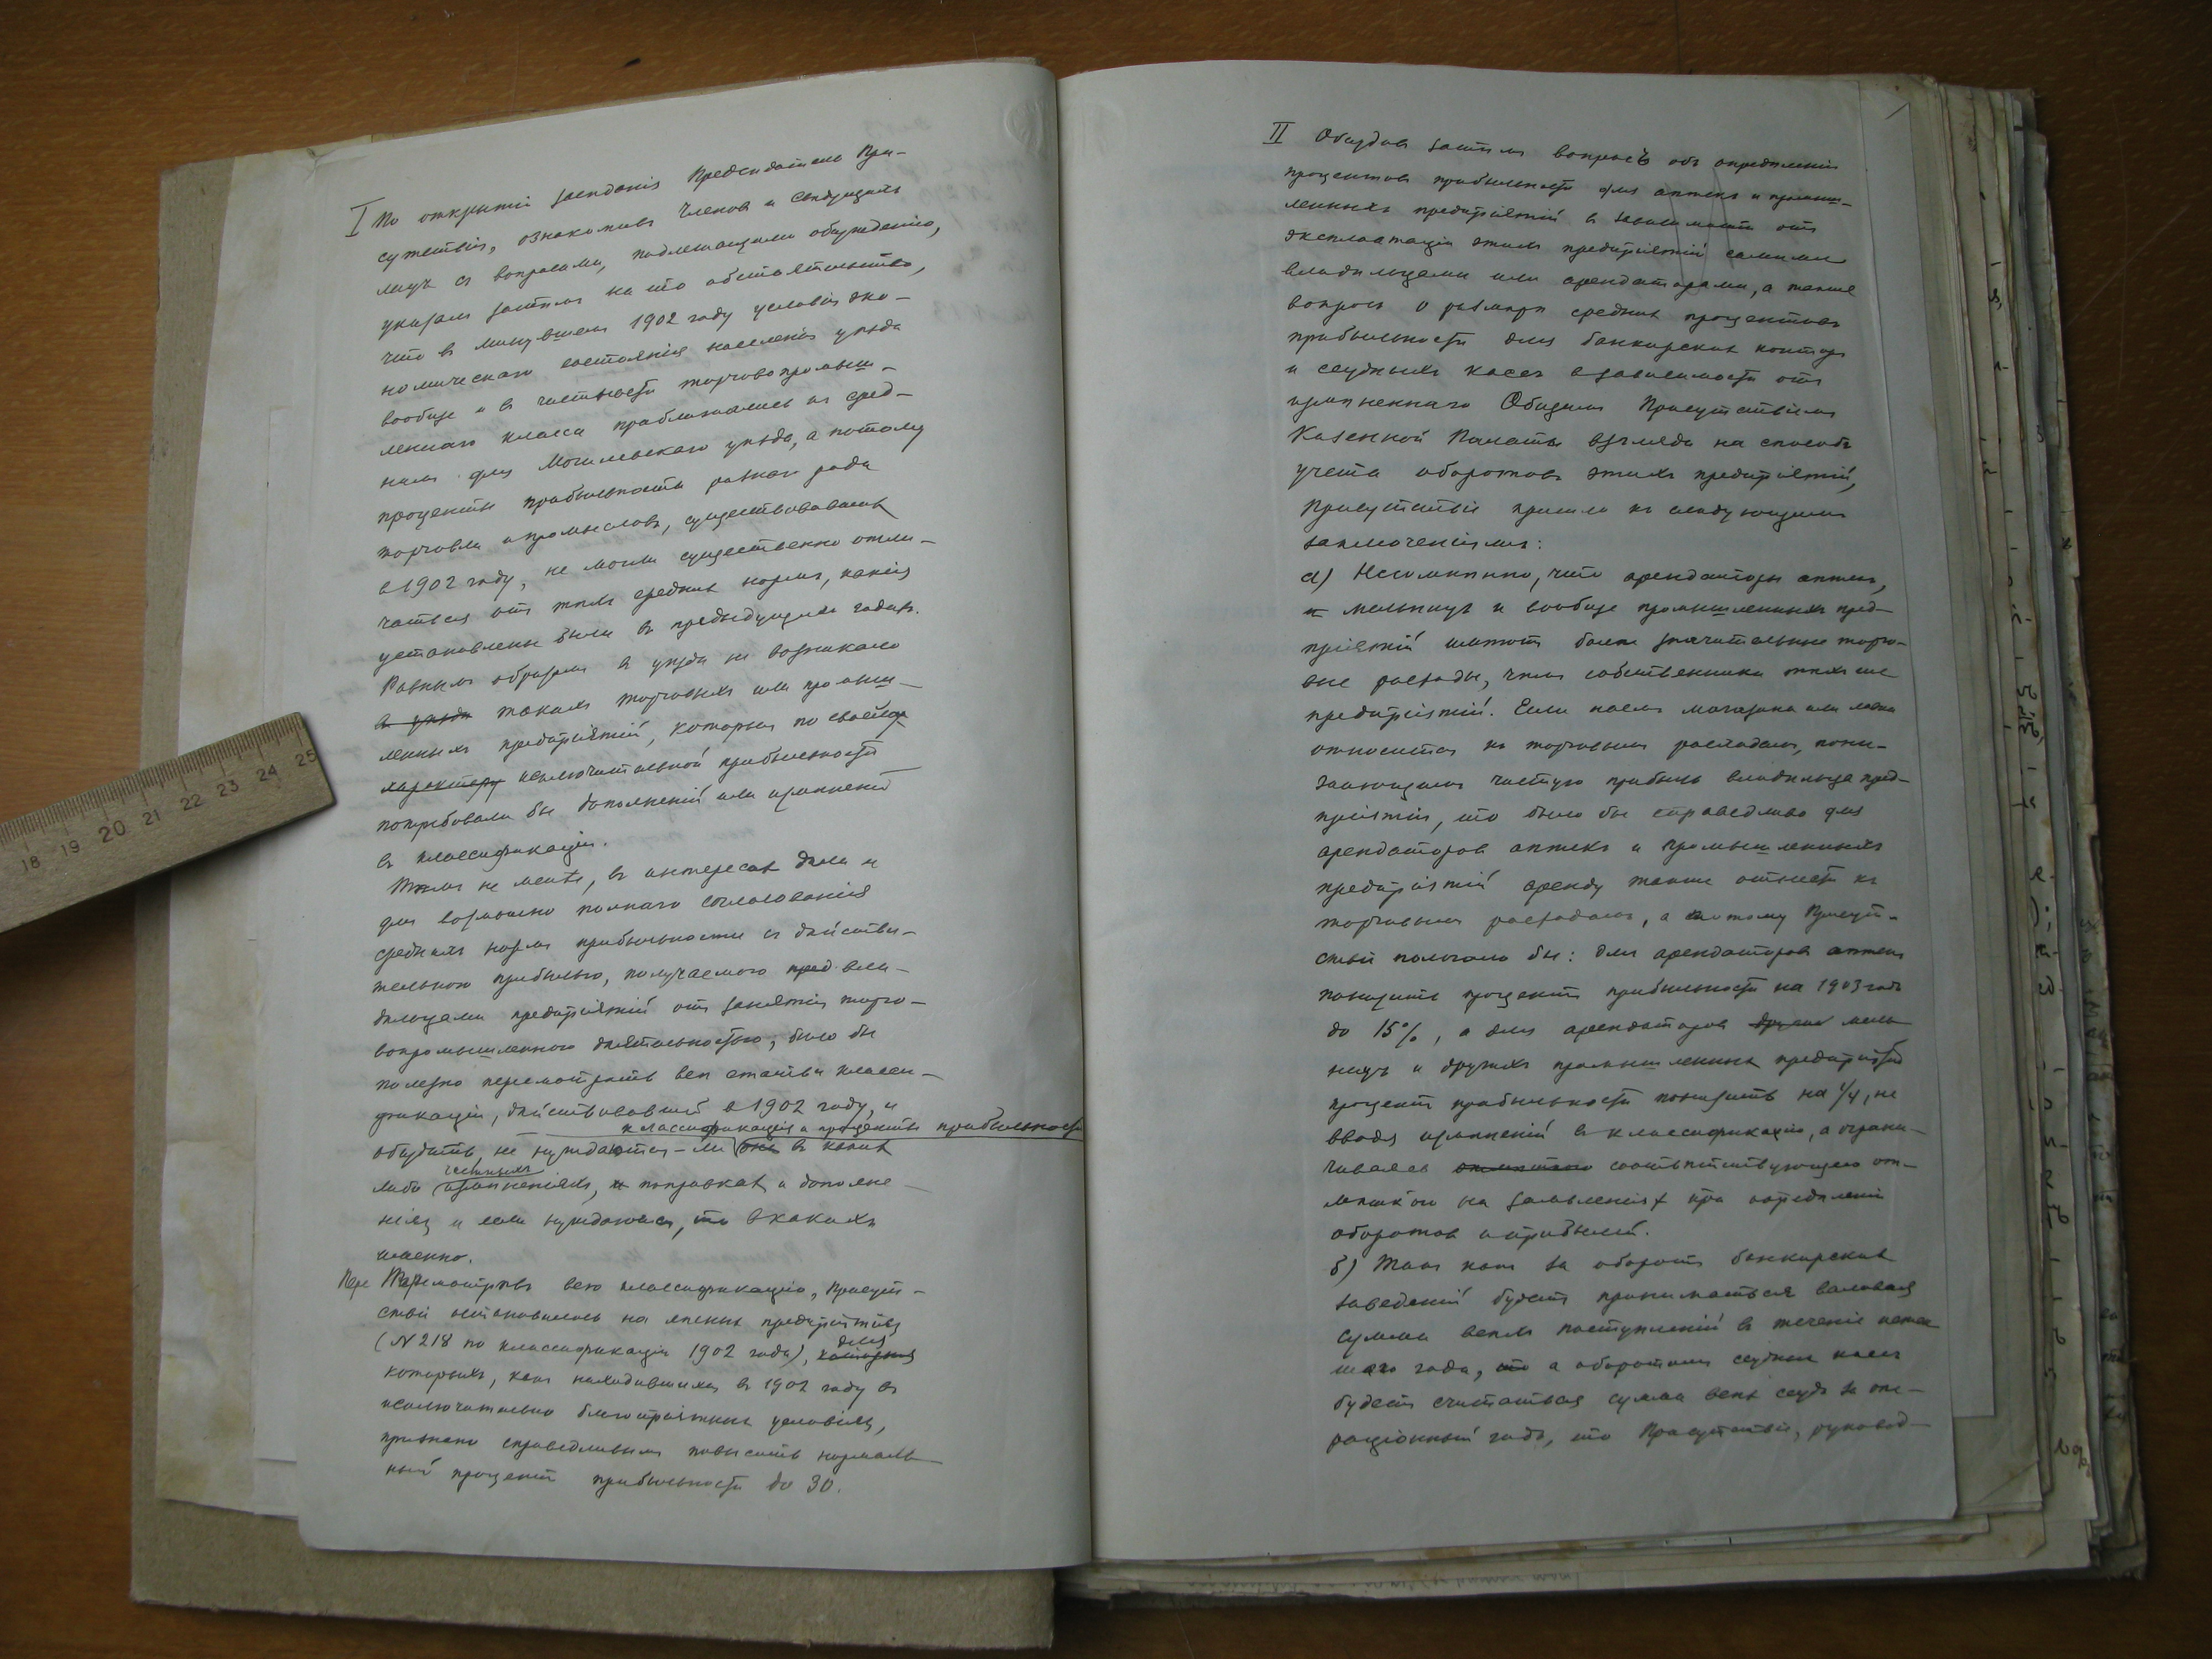 I По открытіи засѣданія Предсѣдатель При-
сутствія, ознакомивъ Членовъ и свѣдущихъ
лицъ съ вопросами, подлежащими обсужденію,
указалъ затѣмъ на то обстоятельство,
что въ минувшемъ 1902 году условія эко-
номическаго состоянія населенія уѣзда
вообще и въ частности торговопромыш-
леннаго класса приближались къ сред-
нимъ для Могилевскаго уѣзда, а потому
проценты прибыльности разнаго рода
торговли и промысловъ, существовавшіе
въ 1902 году, не могли существенно отли-
чаться отъ тѣхъ среднихъ нормъ, какія
установлены были въ предыдущихъ годахъ.
Равнымъ образомъ въ уѣздѣ не возникало
въ уѣздѣ такихъ торговыхъ или промыш-
ленныхъ предпріятій, которыя по своей
характеру исключительной прибыльности
потребовали бы дополненій или измѣненій
въ классификаціи.
Тѣмъ не менѣе, въ интересахъ дѣла и
для возможно полнаго согласованія
среднихъ нормъ прибыльности съ дѣйстви-
тельною прибылью, получаемою вла-
дѣльцами предпріятій отъ занятія торго-
вопромышленною дѣятельностью, было бы
полезно пересмотрѣть всѣ статьи класси-
фикаціи, дѣйствовавшей въ 1902 году, и
классификація и проценты прибыльности
обсудить, не нуждаются-ли онѣ въ какихъ
частныхъ
либо измѣненіяхъ, и поправкахъ и дополне-
ніяхъ и если нуждаются, то въ какихъ
именно.
Пересмотрѣвъ всю классификацію, Присут-
ствіе остановилось на лѣсныхъ предпріятіяхъ
для
(№ 218 по классификаціи 1902 года), которыя
которыхъ, какъ находившихся въ 1902 году въ
исключительно благопріятныхъ условіяхъ,
признано справедливымъ повысить нормаль-
ный процентъ прибыльности до 30.
II Обсудивъ затѣмъ вопросъ объ опредѣленіи
процентовъ прибыльности для аптекъ и промыш-
ленныхъ предпріятій въ зависимости отъ
эксплоатаціи этихъ предпріятій самими
владѣльцами или арендаторами, а также
вопросъ о размѣрѣ среднихъ процентовъ
прибыльности для банкирскихъ конторъ
и ссудныхъ кассъ въ зависимости отъ
измѣненнаго Общимъ Присутствіемъ
Казенной Палаты взгляда на способъ
учета оборотовъ этихъ предпріятій,
Присутствіе пришло къ слѣдующимъ
заключеніямъ:
а) Несомнѣнно, что арендаторы аптекъ,
и мельницъ и вообще промышленныхъ пред-
пріятій имѣютъ болѣе значительные торго-
вые расходы, чѣмъ собственники тѣхъ же
предпріятій. Если наемъ магазина или лавки
относится къ торговымъ расходамъ, пони-
жающимъ чистую прибыль владѣльца пред-
пріятія, то было бы справедливо для
арендаторовъ аптекъ и промышленныхъ
предпріятій аренду также отнести къ
торговымъ расходамъ, а потому Присут-
ствіе полагало бы: для арендаторовъ аптекъ
понизить процентъ прибыльности на 1903 годъ
до 15%, а для арендаторовъ другихъ мель-
ницъ и другихъ промышленныхъ предпріятій
процентъ прибыльности понизить на 1/4, не
вводя измѣненій въ классификацію, а ограни-
чиваясь соотвѣтствующею от-
мѣткою на заявленіяхъ при опредѣленіи
оборотовъ и прибылей.
б) Такъ какъ за оборотъ банкирскихъ
заведеній будетъ приниматься валовая
сумма всѣхъ поступленій въ теченіе истек-
шаго года, а оборотомъ ссудныхъ кассъ
будетъ считаться сумма всѣхъ ссудъ за опе-
раціонный годъ, то Присутствіе, руковод-